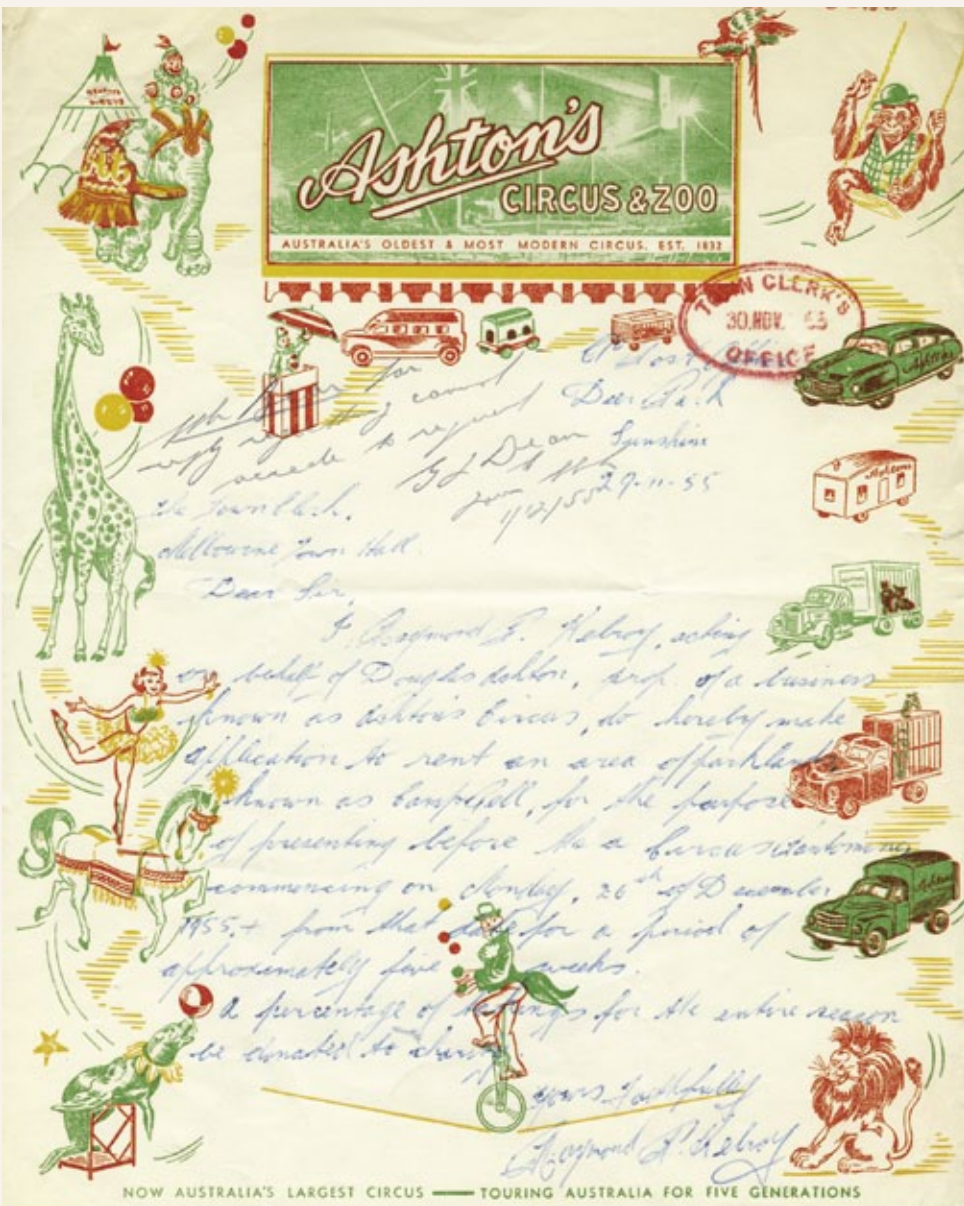 Ashton's
CIRCUS & ZOO
AUSTRALIA'S OLDEST & MOST MODERN CIRCUS. EST. 1832
TOWN CLERK'S
30.NOV. 55
OFFICE
Deer Park
Sunshine
29-11-55
reply regretting cannot
accede to request
G L Dean
1/12/55
The Town Clerk,
Melbourne Town Hall.
Dear Sir,
I Raymond P. Kelroy, acting
on behalf of Douglas Ashton, prop. of a business
known as Ashton's Circus, do hereby make
application to rent an area of parklands
known as, for the purpose
of presenting before the a Circus Pantomime
commencing on Monday, 26th of December
1955, + from that date for a period of
approximately five weeks.
A percentage of takings for the entire season
be donated to charity
Yours Faithfully
Raymond P. Kelroy
Ashtons
Ashtons
Ashtons
NOW AUSTRALIA'S LARGEST CIRCUS — TOURING AUSTRALIA FOR FIVE GENERATIONS